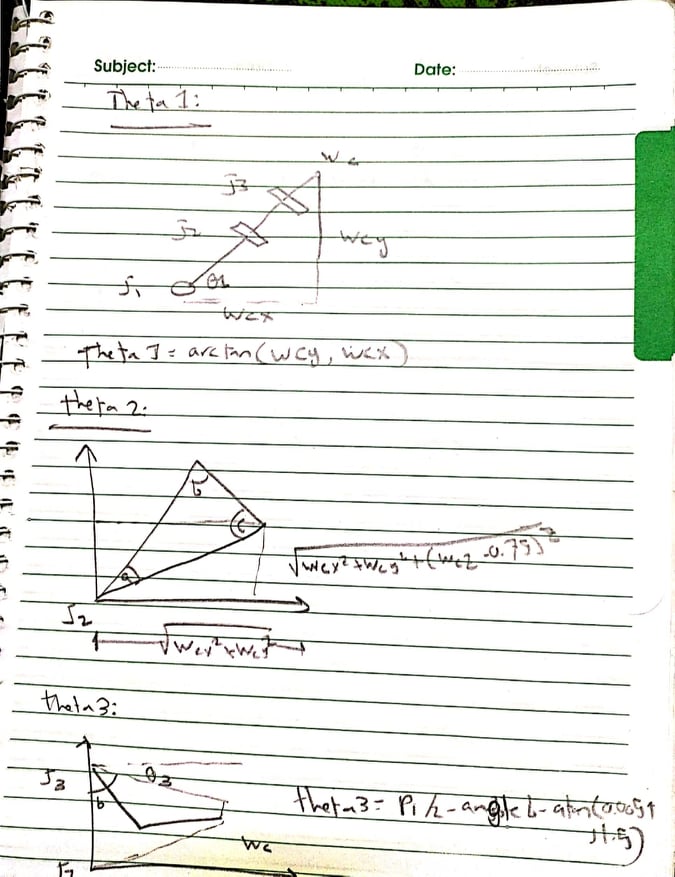 Subject:
Date:
Theta 1:
Wc
J3
J2
Wcy
J1
θ1
Wcx
Theta 1 = arctan(Wcy, Wcx)
theta 2:
b
c
a
√Wcx²+Wcy²+(Wcz-0.75)²
J2
√Wcx²+Wcy²
theta3:
J3
θ3
b
theta3 = Pi/2-angle b-atan(
1.5)
Wc